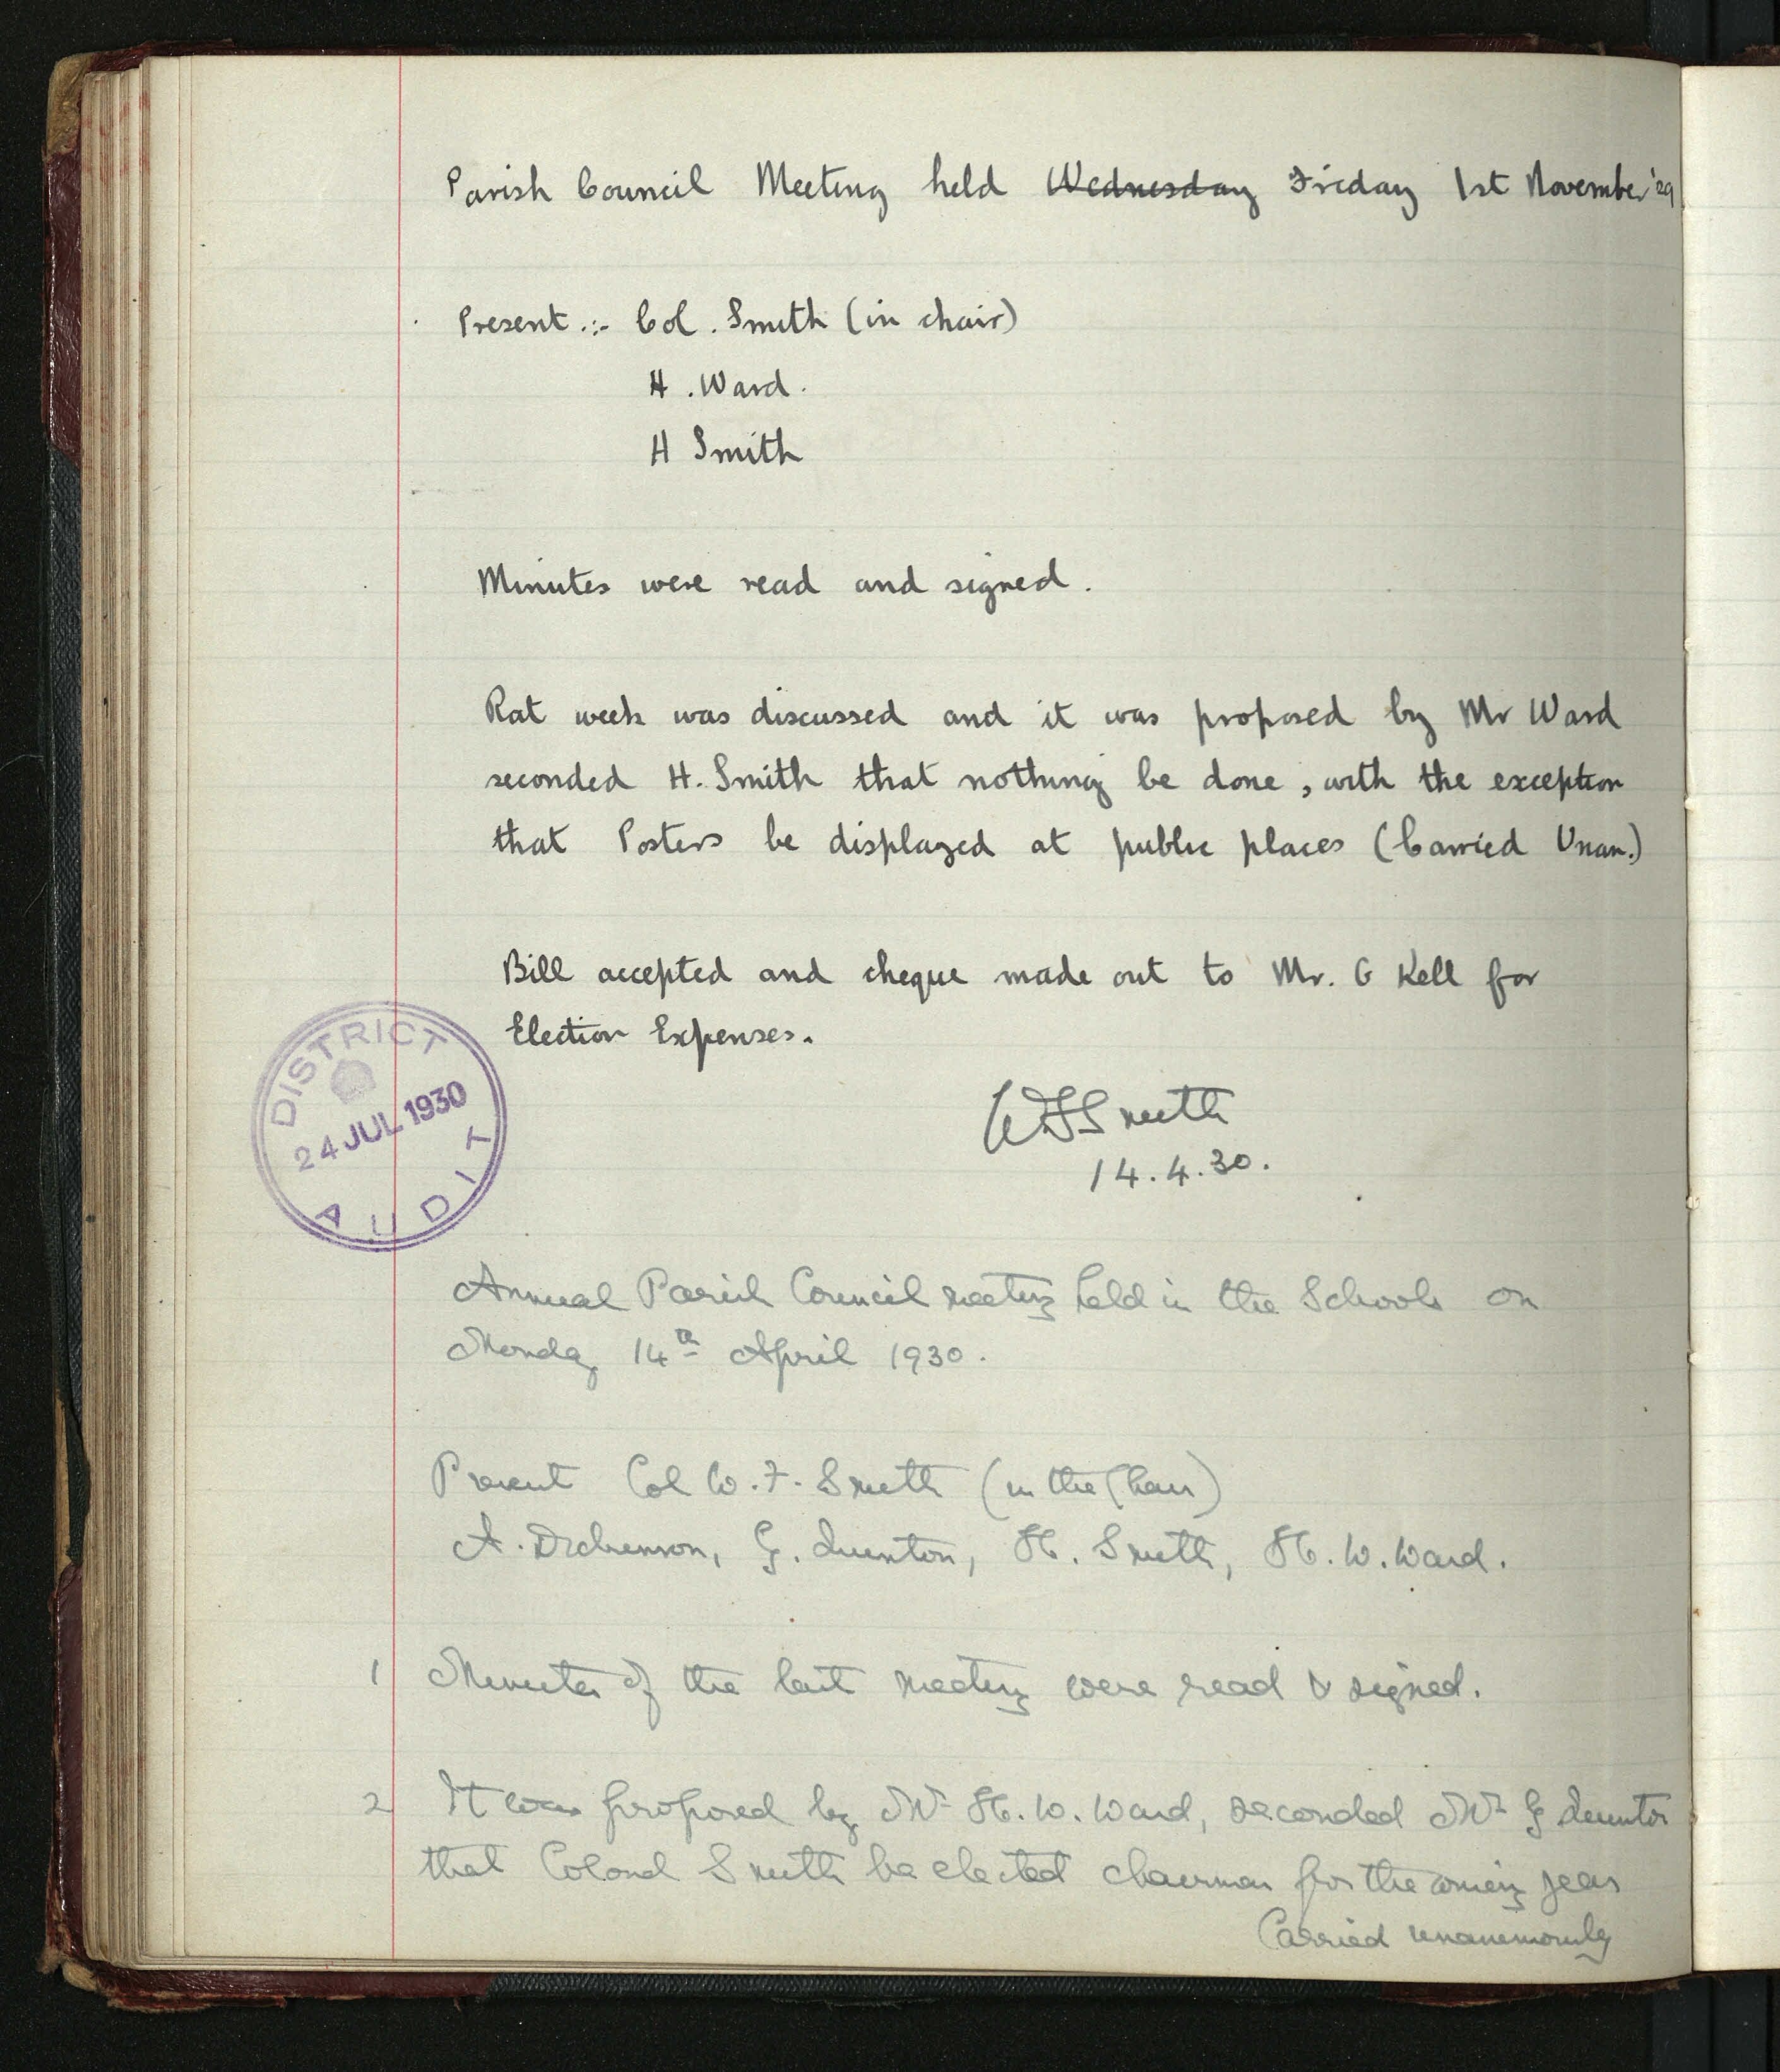 Parish Council Meeting held Wednesday Friday 1st November '29
Present :- Col. Smith (in chair)
H. Ward.
H Smith
Minutes were read and signed.
Rat week was discussed and it was proposed by Mr Ward
seconded H. Smith that nothing be done, with the exception
that Posters be displayed at public places (Carried Unan.)
Bill accepted and cheque made out to Mr. G Kell for
Election Expenses.
DISTRICT
24 JUL 1930
AUDIT
WFSmith
14.4.30.
Annual Parish Council meeting held in the Schools on
Monday 14th April 1930.
Present Col W. F. Smith (in the Chair)
A. Dickenson, G. Quenton, H. Smith, H. W. Ward.
1 Minutes of the last meeting were read & signed.
2 It was proposed by Mr H. W. Ward, seconded Mr G
that Colonel Smith be elected chairman for the coming year
Carried unanimously